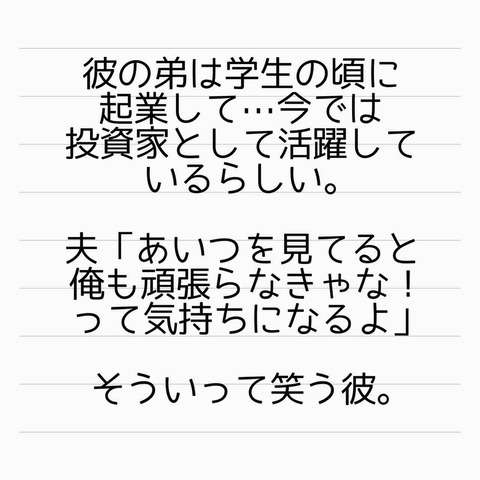 彼の弟は学生の頃に
起業して…今では
投資家として活躍して
いるらしい。
夫「あいつを見てると
俺も頑張らなきゃな!
って気持ちになるよ」
そういって笑う彼。